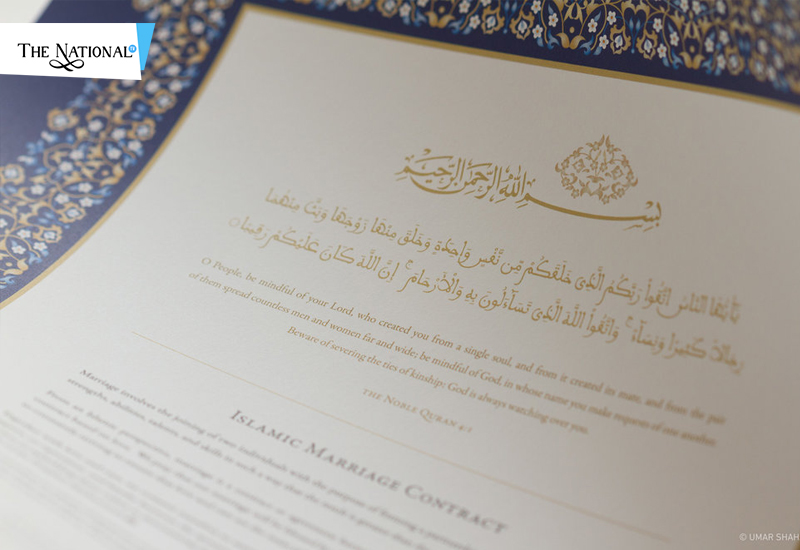 THE NATIONAL
بِسْمِ اللهِ الرَّحْمٰنِ الرَّحِيْمِ
يَٰٓأَيُّهَا النَّاسُ اتَّقُواْ رَبَّكُمُ الَّذِي خَلَقَكُمْ مِّن نَّفْسٍ وَاحِدَةٍ وَخَلَقَ مِنْهَا زَوْجَهَا وَبَثَّ مِنْهُمَا
رِجَالًا كَثِيرًا وَنِسَآءً ۚ وَاتَّقُواْ اللَّهَ الَّذِي تَسَآءَلُونَ بِهِ وَالْأَرْحَامَ ۚ إِنَّ اللَّهَ كَانَ عَلَيْكُمْ رَقِيبًا
O People, be mindful of your Lord, who created you from a single soul, and from it created its mate, and from the pair
of them spread countless men and women far and wide; be mindful of God, in whose name you make requests of one another.
Beware of severing the ties of kinship: God is always watching over you.
THE NOBLE QURAN 4:1
ISLAMIC MARRIAGE CONTRACT
Marriage involves the joining of two individuals with the purpose of forming a
strengths, abilities, talents, and skills in such a way that the result is greater than
From an Islamic perspective, marriage is a contract
© UMAR SHAH